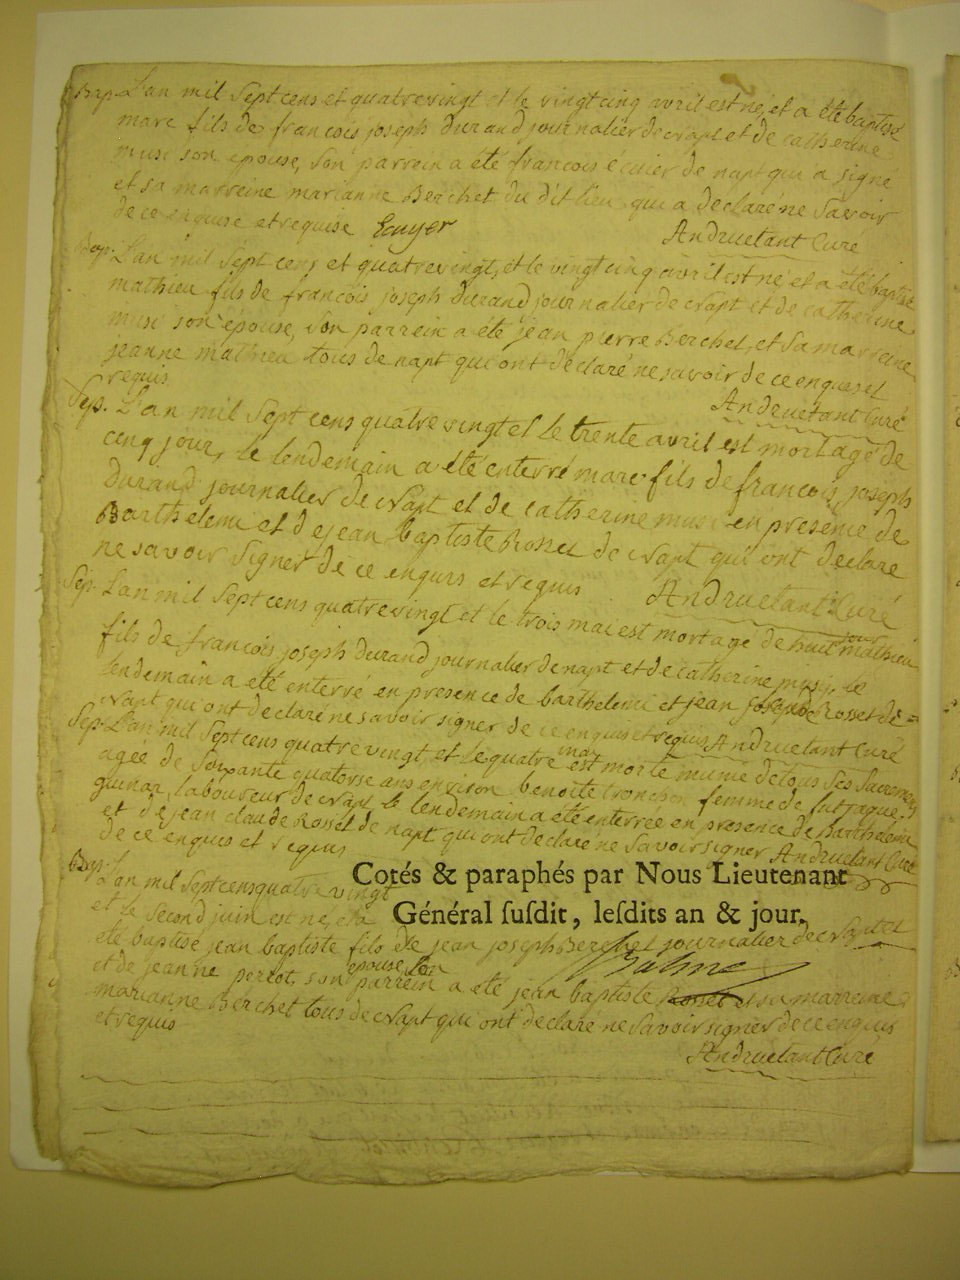 Bap. L'an mil sept cens et quatrevingt et le vingtcinq avril est né, et a été baptisé
marc fils de francois joseph durand journalier de crapt et de catherine
musi son epouse, son parrein a été francois ecuier de napt qui a signé
et sa marreine marianne Berchet du dit lieu qui a declaré ne savoir
de ce enquise et requise Ecuyer
Andruetant Curé
Bap. L'an mil sept cens et quatrevingt, et le vingt cinq avril est né et a été baptisé
mathieu fils de francois joseph durand journalier de crapt et de catherine
musi son epouse, son parrein a été jean pierre Berchet, et sa marreine
jeanne mathieu tous de napt qui ont declaré ne savoir de ce enques et
requis
Andruetant Curé
Sep. L'an mil sept cens quatrevingt et le trente avril est mort agé de
cinq jour, le lendemain a été enterré marc fils de francois joseph
durand journalier de crapt et de catherine musi en presence de
Barthelemi et de jean baptiste Rosset de crapt qui ont declaré
ne savoir signer de ce enquis et requis
Andruetant Curé
Sep. L'an mil sept cens quatrevingt et le trois mai est mort agé de huit jour mathieu
fils de francois joseph durand journalier de napt et de catherine musy, le
lendemain a été enterré en presence de barthelemi et jean Rosset de
crapt qui ont declaré ne savoir signer de ce enquis et requis Andruetant Curé
Sep. L'an mil sept cens quatrevingt, et le quatre mai est morte munie de tous ses sacremens
agée de soixante quatorse ans environ benoite tronchon femme de fut jaque
guinar, laboureur de crapt le lendemain a été enterrée en presence de Barthelemi
et de jean claude Rosset de napt qui ont declaré ne savoir signer Andruetant Curé
de ce enques et requis
Cotés & paraphés par Nous Lieutenant
Général ſuſdit, leſdits an & jour.
Bap. L'an mil sept cens quatre vingt
et le second juin est né, et a
été baptisé jean baptiste fils de jean joseph Berchet journalier de crapt et
et de jeanne perrot, son epouse son parrein a été jean baptiste Rosset et sa marreine
marianne Berchet tous de crapt qui ont declaré ne savoir signer de ce enquis
et requis
Andruetant Curé